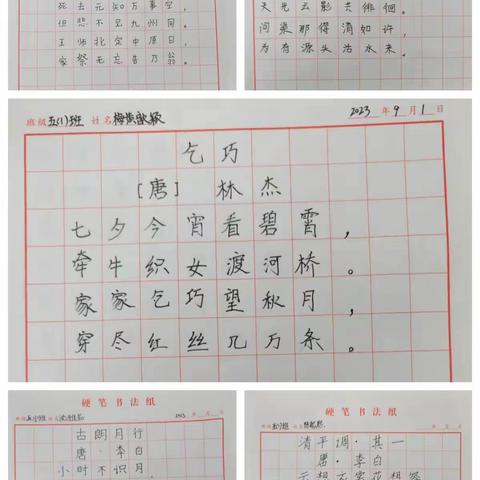 死去元知万事空，
但悲不见九州同。
王师北定中原日，
家祭无忘告乃翁。
天光云影共徘徊。
问渠那得清如许，
为有源头活水来。
班级五(1)班 姓名 2023年9月1日
乞巧
[唐] 林杰
七夕今宵看碧霄，
牵牛织女渡河桥。
家家乞巧望秋月，
穿尽红丝几万条。
硬笔书法纸
班级 姓名 2023年 月 日
古朗月行
唐·李白
小时不识月，
硬笔书法纸
班级 姓名 年 月 日
清平调·其一
唐·李白
云想衣裳花想容